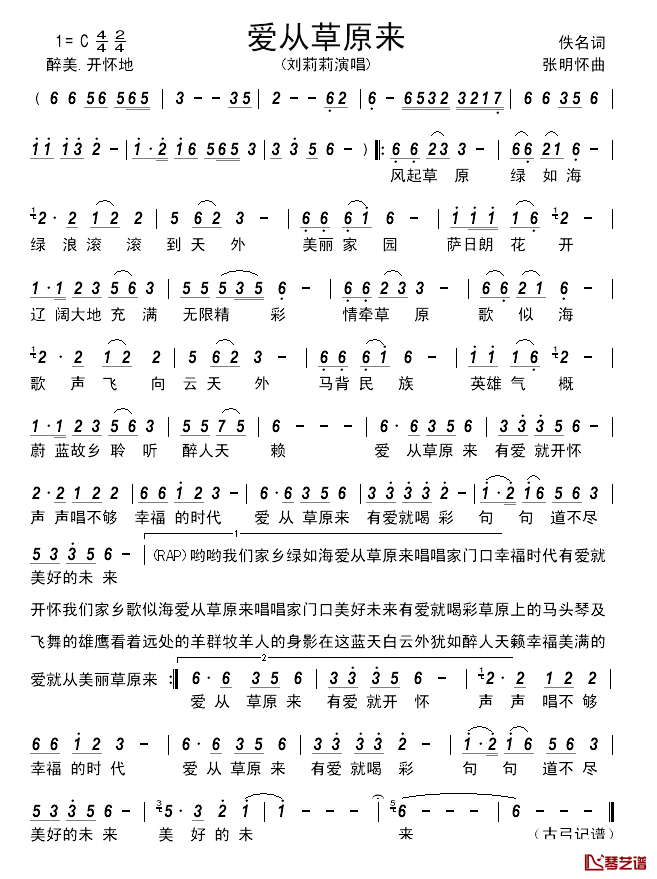 爱从草原来
1=C 4/4 2/4
佚名词
醉美.开怀地
(刘莉莉演唱)
张明怀曲
( 6 6 5 6 5 6 5 | 3 - - 3 5 | 2 - - 6 2 | 6 - 6 5 3 2 3 2 1 7 | 6 6 3 5 6 |
1 1 1 3 2 - | 1 · 2 1 6 5 6 5 3 | 3 3 5 6 - | ) ‖: 6 6 2 3 3 - | 6 6 2 1 3 - |
风起草 原 绿 如 海
1 2 · 2 1 2 2 | 5 6 2 3 - | 6 6 6 1 6 - | 1 1 1 1 6 2 - |
绿 浪 滚 滚 到 天 外 美丽 家 园 萨日朗 花 开
1 · 1 2 3 5 6 3 | 5 5 5 3 5 6 - | 6 6 2 3 3 - | 6 6 2 1 3 - |
辽 阔大地 充 满 无限精 彩 情牵草 原 歌 似 海
1 2 · 2 1 2 2 | 5 6 2 3 - | 6 6 6 1 6 - | 1 1 1 6 2 - |
歌 声 飞 向 云 天 外 马背 民 族 英雄 气 概
1 · 1 2 3 5 6 3 | 5 5 7 5 6 - | 6 · 6 3 5 6 | 3 3 3 5 6 |
蔚 蓝故乡 聆 听 醉人天 赖 爱 从草原 来 有爱 就开怀
2 · 2 1 2 2 | 6 6 1 2 3 - | 6 · 6 3 5 6 | 3 3 3 3 2 - | 1 · 2 1 6 5 6 3 |
声 声唱不够 幸福 的时代 爱 从 草原来 有爱就喝 彩 句 句 道不尽
5 3 3 5 6 - | 1 (RAP)哟哟我们家乡绿如海爱从草原来唱唱家门口幸福时代有爱就
美好的未来
开怀我们家乡歌似海爱从草原来唱唱家门口美好未来有爱就喝彩草原上的马头琴及
飞舞的雄鹰看着远处的羊群牧羊人的身影在这蓝天白云外犹如醉人天籁幸福美满的
爱就从美丽草原来 :‖ 2 6 · 6 3 5 6 | 3 3 3 5 6 | 1 2 · 2 1 2 2 |
爱 从 草原 来 有爱 就开 怀 声 声 唱不够
6 6 1 2 3 - | 6 · 6 3 5 6 | 3 3 3 3 2 - | 1 · 2 1 6 5 6 3 |
幸福 的时 代 爱 从 草原来 有爱就喝 彩 句 句 道不尽
5 3 3 5 6 - | 3 5 · 3 2 1 | 1 - - - | 5 6 - - - | 6 - - - ‖
美好的未 来 美 好 的 未 来 (古弓记谱)
琴艺谱